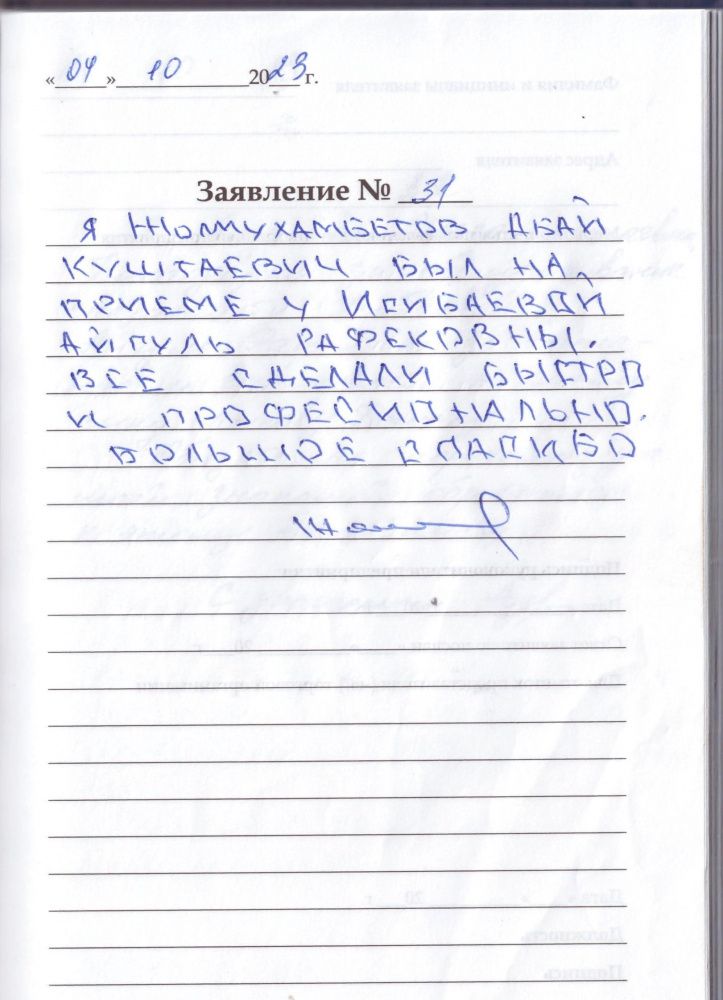 «04» 10 2023 г.
Заявление № 31
Я ЖОЛМУХАМБЕТОВ АБАЙ
КУШТАЕВИЧ БЫЛ НА
ПРИЕМЕ У ИСИБАЕВОЙ
АЙГУЛЬ РАФЕКОВНЫ.
ВСЕ СДЕЛАЛИ БЫСТРО
И ПРОФЕСИОНАЛЬНО.
БОЛЬШОЕ СПАСИБО